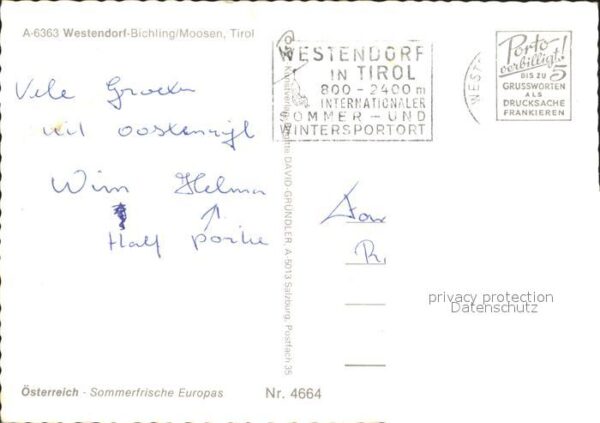 A-6363 Westendorf-Bichling/Moosen, Tirol
WESTENDORF
IN TIROL
800 - 2400 m
INTERNATIONALER
SOMMER - UND
WINTERSPORTORT
WEST
Porto
verbilligt!
BIS ZU 5
GRUSSWORTEN
ALS
DRUCKSACHE
FRANKIEREN
Vele Groeten
uit Oostenrijk
Wim Helma
Half
Aan
Kunstverlag DAVID GRÜNDLER, A-5013 Salzburg, Postfach 35
privacy protection
Datenschutz
Österreich - Sommerfrische Europas
Nr. 4664